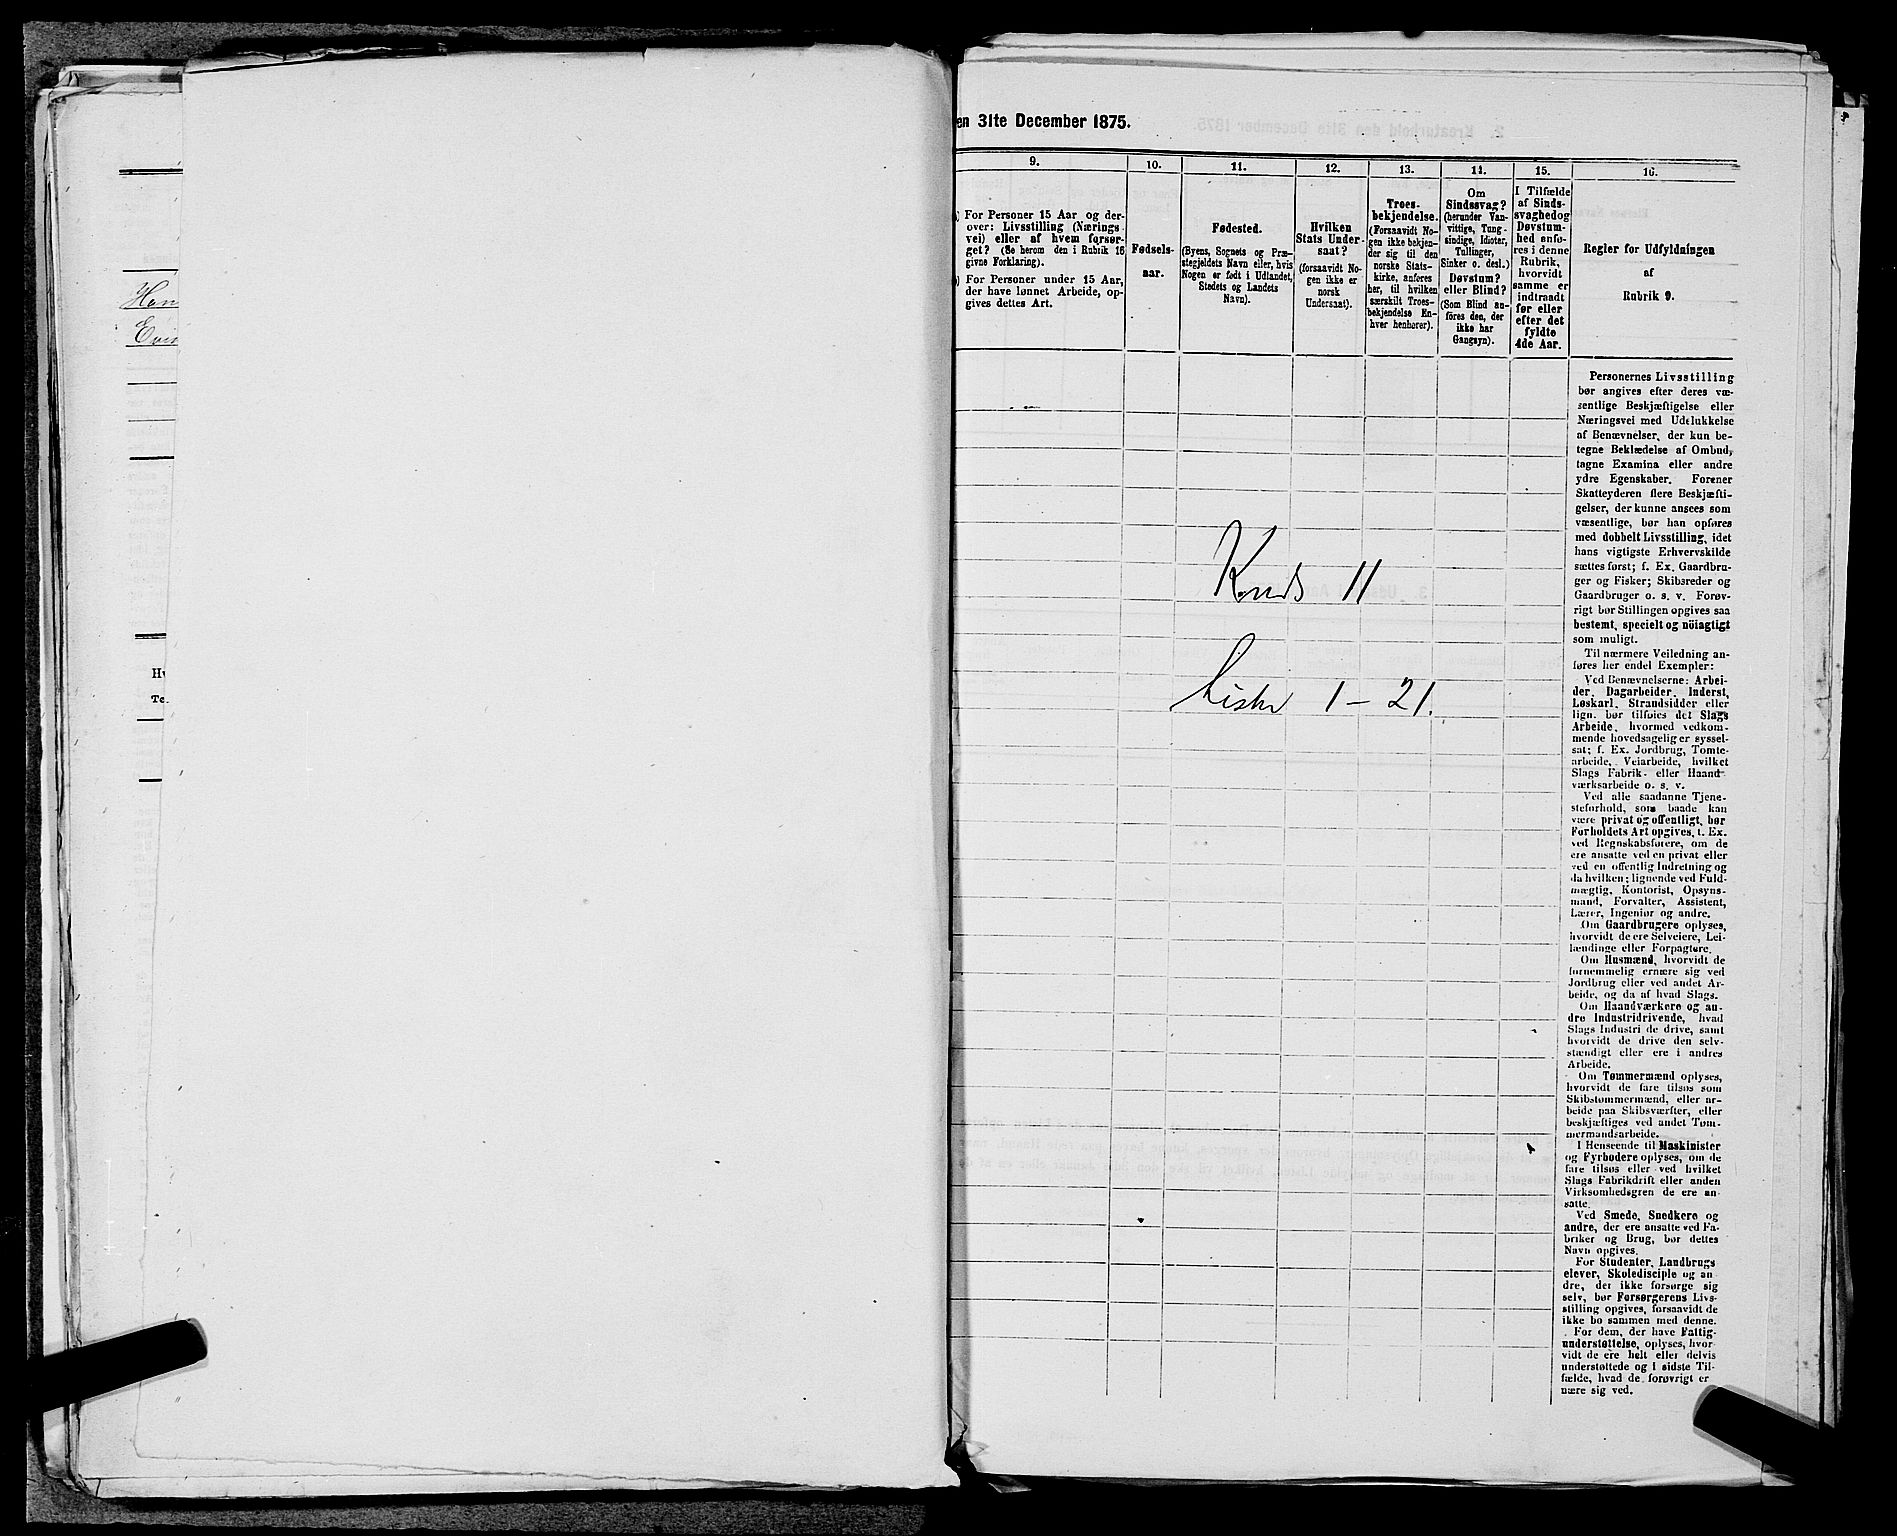 Han
Evin
Hv
Te
en 31te December 1875.
9.
10.
11.
12.
13.
14.
15.
16.
For Personer 15 Aar og der-
over: Livsstilling (Nærings
vei) eller af hvem forsør-
get? (Se herom den i Rubrik 16
givne Forklaring).
For Personer under 15 Aar,
der have lønnet Arbeide, op-
gives dettes Art.
Fødsels-
aar.
Fødested.
(Byens, Sognets og Præ-
stegjeldets Navn eller, hvis
Nogen er født i Udlandet,
Stedets og Landets
Navn).
Hvilken
Stats Under-
saat?
(forsaavidt No-
gen ikke er
norsk
Undersaat).
Troes-
bekjendelse.
(Forsaavidt No-
gen ikke bekjen-
der sig til den
norske Stats-
kirke, anføres
her, til hvilken
særskilt Troes-
bekjendelse En-
hver henhører).
Om
Sindssvag?
(herunder Van-
vittige, Tung-
sindige, Idioter,
Tullinger,
Sinker o. desl.)
Døvstum?
eller Blind?
(Som Blind an-
føres den, der
ikke har
Gangsyn).
I Tilfælde
af Sinds-
svaghed og
Døvstum-
hed anfø-
res i denne
Rubrik,
hvorvidt
samme er
indtraadt
før eller
efter det
fyldte
4de Aar.
Regler for Udfyldningen
af
Rubrik 9.
Kreds 11
Lister 1 – 21.
Personernes Livsstilling
bør angives efter deres væ-
sentlige Beskjæftigelse eller
Næringsvei med Udelukkelse
af Benævnelser, der kun be-
tegne Beklædelse af Ombud,
tagne Examina eller andre
ydre Egenskaber. Forener
Skatteyderen flere Beskjæfti-
gelser, der kunne ansees som
væsentlige, bør han opføres
med dobbelt Livsstilling, idet
hans vigtigste Erhvervskilde
sættes først; f. Ex. Gaardbru-
ger og Fisker; Skibsreder og
Gaardbruger o. s. v. Forøv-
rigt bør Stillingen opgives saa
bestemt, specielt og nöiagtigt
som muligt.
Til nærmere Veiledning an-
føres her endel Exempler:
Ved Benævnelserne: Arbei-
der, Dagarbeider, Inderst,
Løskarl, Strandsidder eller
lign. bør tilføies det Slags
Arbeide, hvormed vedkom-
mende hovedsagelig er syssel-
sat; f. Ex. Jordbrug, Tomte-
arbeide, Veiarbeide, hvilket
Slags Fabrik- eller Haand-
værksarbeide o. s. v.
Ved alle saadanne Tjene-
steforhold, som baade kan
være privat og offentligt, bør
Forholdets Art opgives, t. Ex.
ved Regnskabsførere, om de
ere ansatte ved en privat eller
ved en offentlig Indretning og
da hvilken; lignende ved Fuld-
mægtig, Kontorist, Opsyns-
mand, Forvalter, Assistent,
Lærer, Ingeniør og andre.
Om Gaardbrugere oplyses,
hvorvidt de ere Selveiere, Lei-
lændinge eller Forpagtere.
Om Husmænd, hvorvidt de
fornemmelig ernære sig ved
Jordbrug eller ved andet Ar-
beide, og da af hvad Slags.
Om Haandværkere og an-
dre Industridrivende, hvad
Slags Industri de drive, samt
hvorvidt de drive den selv-
stændigt eller ere i andres
Arbeide.
Om Tømmermænd oplyses,
hvorvidt de fare tilsøs som
Skibstømmermænd, eller ar-
beide paa Skibsværfter, eller
beskjæftiges ved andet Tøm-
mermandsarbeide.
I Henseende til Maskinister
og Fyrbødere oplyses, om de
fare tilsøs eller ved hvilket
Slags Fabrikdrift eller anden
Virksomhedsgren de ere an-
satte.
Ved Smede, Snedkere og
andre, der ere ansatte ved Fa-
briker og Brug, bør dettes
Navn opgives.
For Studenter, Landbrugs
elever, Skoledisciple og an
dre, der ikke forsørge sig
selv, bør Forsørgerens Livs-
stilling opgives, forsaavidt de
ikke bo sammen med denne.
For dem, der have Fattig-
understøttelse, oplyses, hvor
vidt de ere helt eller delvis
understøttede og i sidste Til-
fælde, hvad de forøvrigt er
nære sig ved.